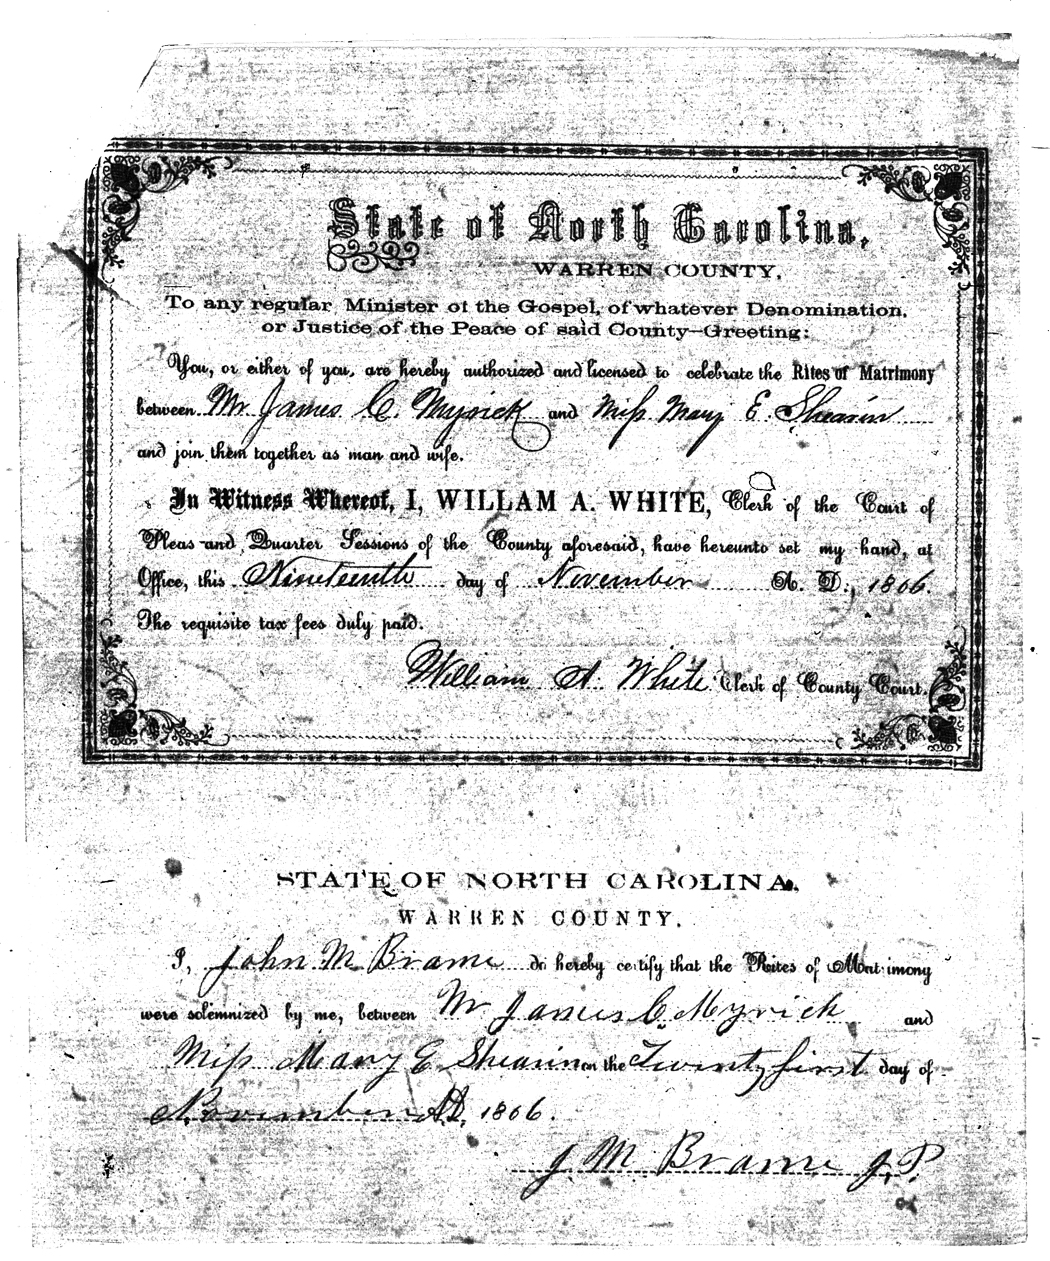 State of North Carolina,
WARREN COUNTY.
To any regular Minister of the Gospel, of whatever Denomination,
or Justice of the Peace of said County—Greeting:
You, or either of you, are hereby authorized and licensed to celebrate the Rites of Matrimony
between Mr James C. Myrick and Miss Mary E. Shearin
and join them together as man and wife.
In Witness Whereof, I, WILLAM A. WHITE, Clerk of the Court of
Pleas and Quarter Sessions of the County aforesaid, have hereunto set my hand, at
Office, this Nineteenth day of November A. D., 1806.
The requisite tax fees duly paid.
William A White Clerk of County Court.
STATE OF NORTH CAROLINA,
WARREN COUNTY.
I, John M Brame do hereby certify that the Rites of Matrimony
were solemnized by me, between Mr James C. Myrick and
Miss Mary E Shearin on the Twenty first day of
November A.D, 1806.
J M Brame J.P.